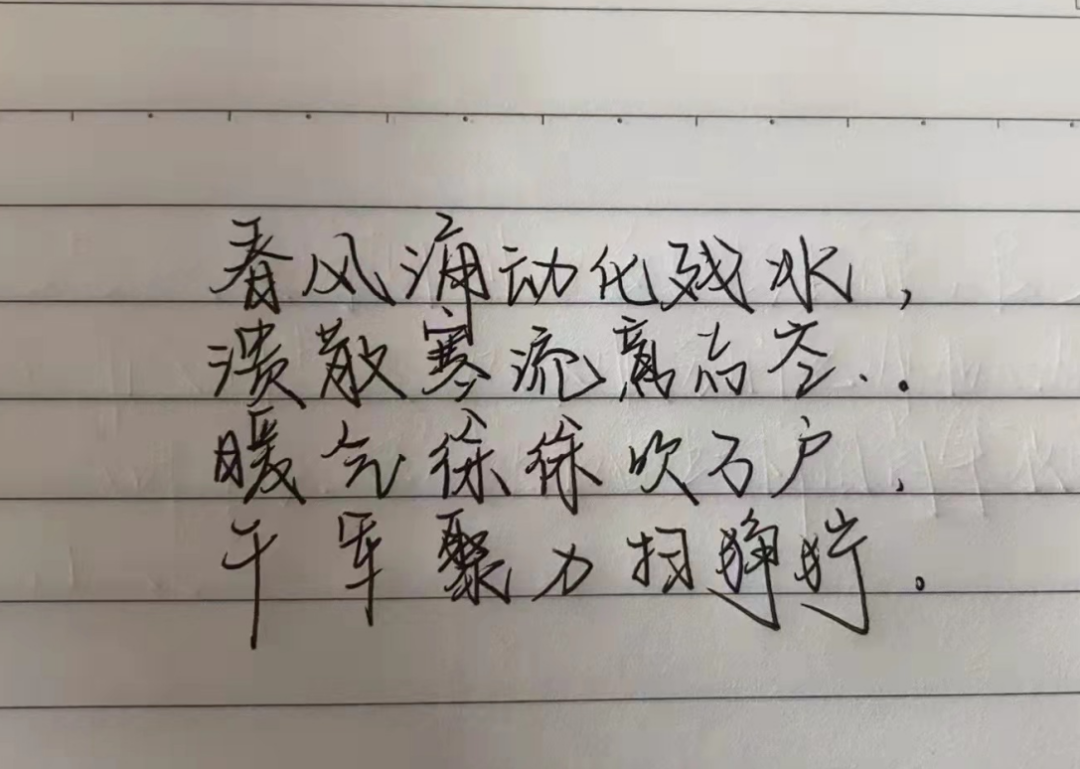 春风涌动化残冰，
溃散寒流离高空。
暖气徐徐吹万户，
千军聚力扫狰狞。